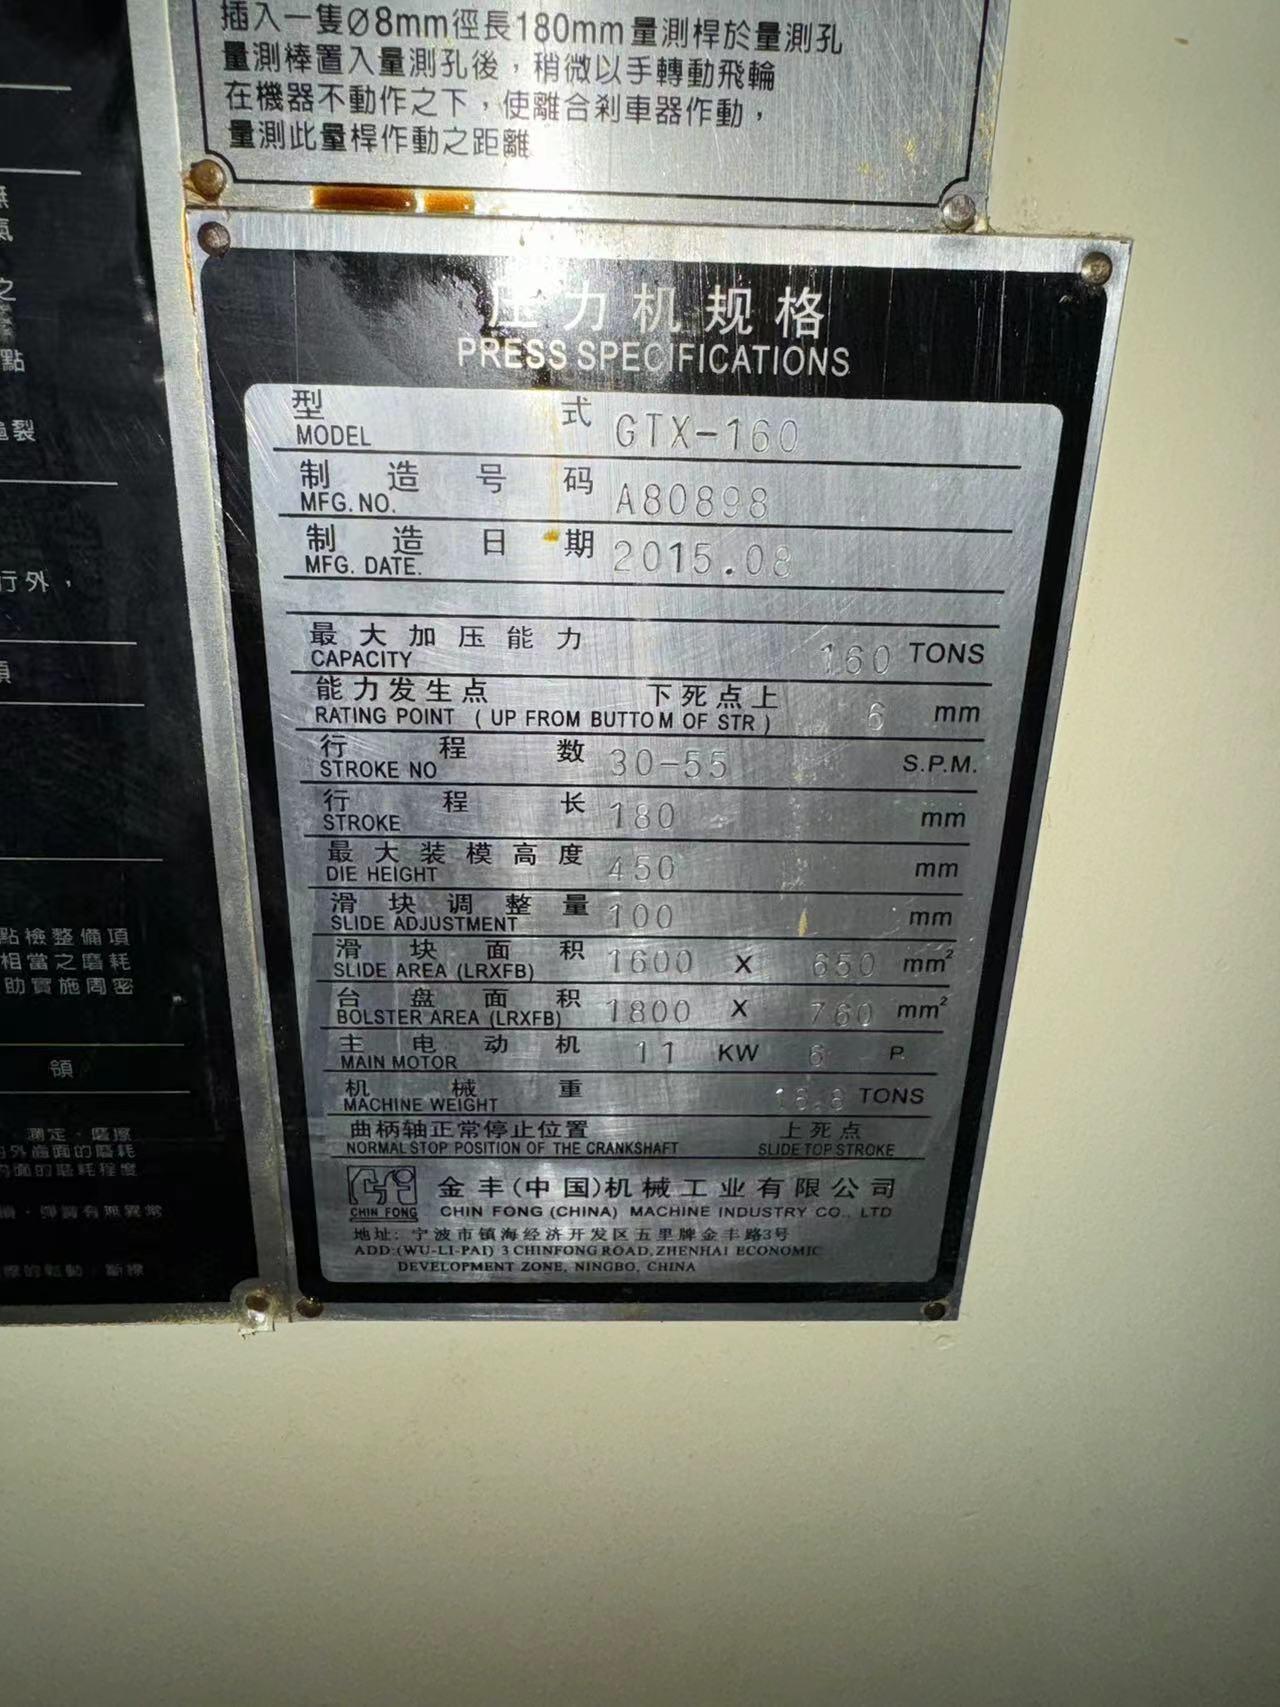 插入一隻Ø8mm徑長180mm量測桿於量測孔
量測棒置入量測孔後，稍微以手轉動飛輪
在機器不動作之下，使離合剎車器作動，
量測此量桿作動之距離
之
點
裂
行外，
點檢整備項
相當之磨耗
助實施周密
領
測定．磨擦
外齒面的磨耗
面的磨耗程度
彈簧有無異常
压力机规格
PRESS SPECIFICATIONS
型 式 GTX-160
MODEL
制造号码 A80898
MFG. NO.
制造日期 2015.08
MFG. DATE.
最大加压能力 160 TONS
CAPACITY
能力发生点 下死点上 6 mm
RATING POINT (UP FROM BUTTOM OF STR)
行程数 30-55 S.P.M.
STROKE NO
行程长 180 mm
STROKE
最大装模高度 450 mm
DIE HEIGHT
滑块调整量 100 mm
SLIDE ADJUSTMENT
滑块面积 1600 X 650 mm²
SLIDE AREA (LRXFB)
台盘面积 1800 X 760 mm²
BOLSTER AREA (LRXFB)
主电动机 11 KW 6 P.
MAIN MOTOR
机械重 TONS
MACHINE WEIGHT
曲柄轴正常停止位置 上死点
NORMAL STOP POSITION OF THE CRANKSHAFT SLIDE TOP STROKE
CHIN FONG
金丰(中国)机械工业有限公司
CHIN FONG (CHINA) MACHINE INDUSTRY CO., LTD
地址: 宁波市镇海经济开发区五里牌金丰路3号
ADD:(WU-LI-PAI) 3 CHINFONG ROAD, ZHENHAI ECONOMIC
DEVELOPMENT ZONE, NINGBO, CHINA